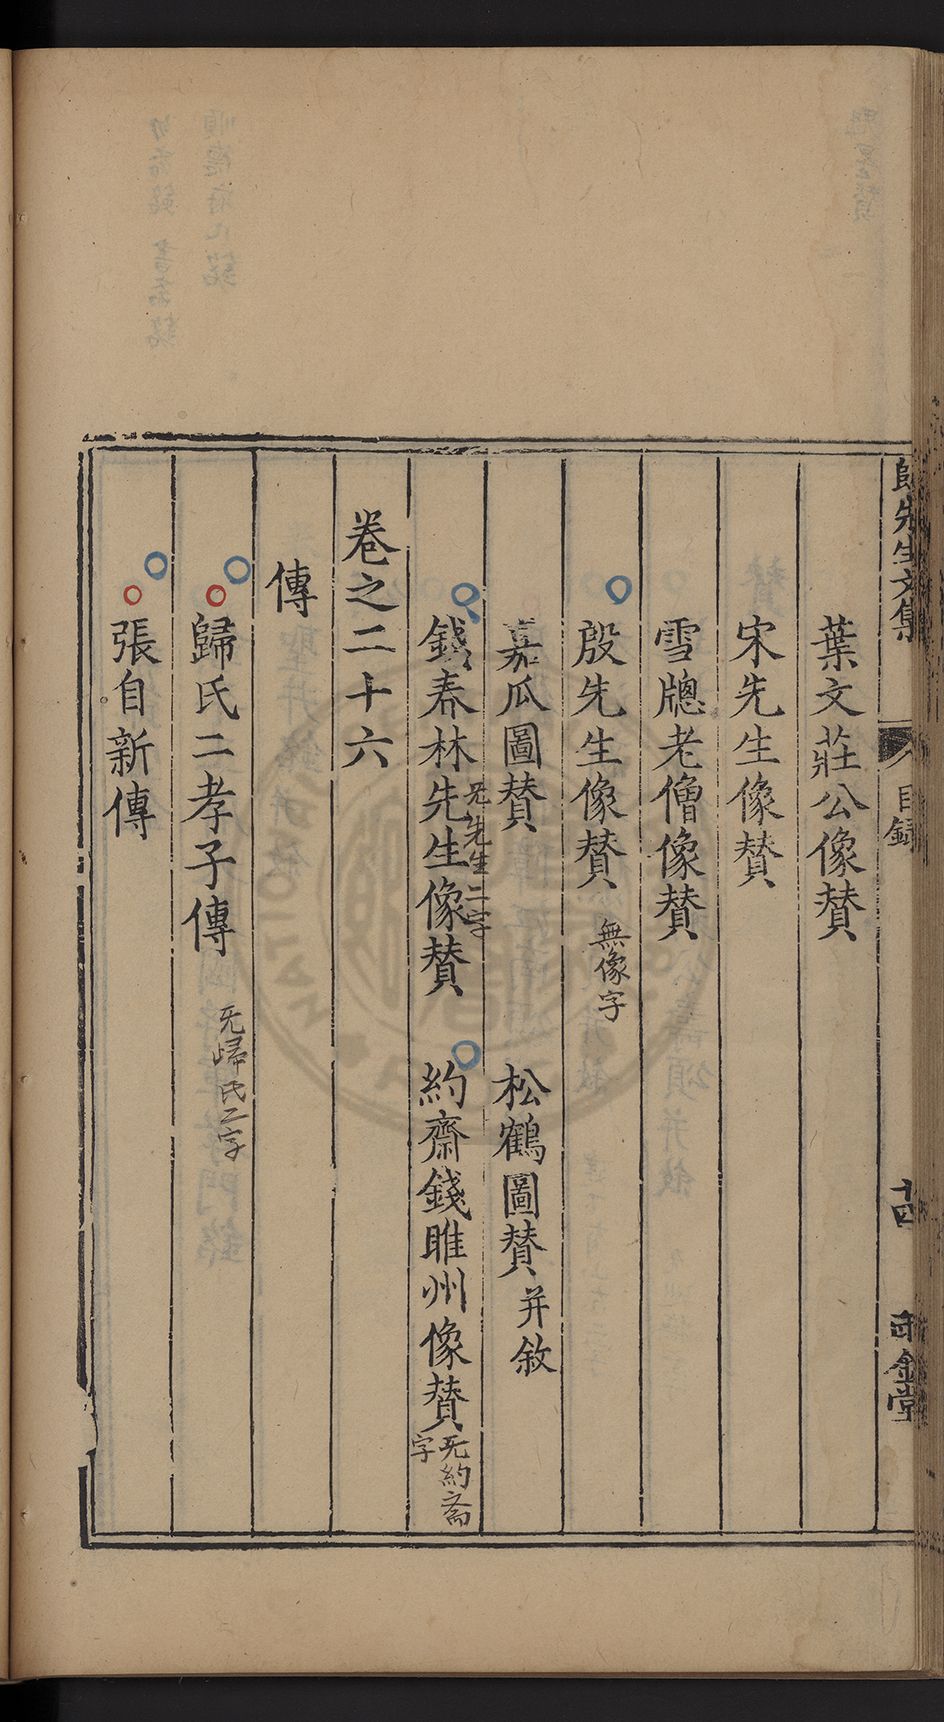 先生文集
目錄
葉文莊公像賛
宋先生像賛
雪牕老僧像賛
殷先生像賛 無像字
嘉瓜圖賛 松鶴圖賛 并敘
錢春林先生像賛 无先生二字 約齋錢睢州像賛 无約斋字
卷之二十六
傳
歸氏二孝子傳 无歸氏二字
張自新傳